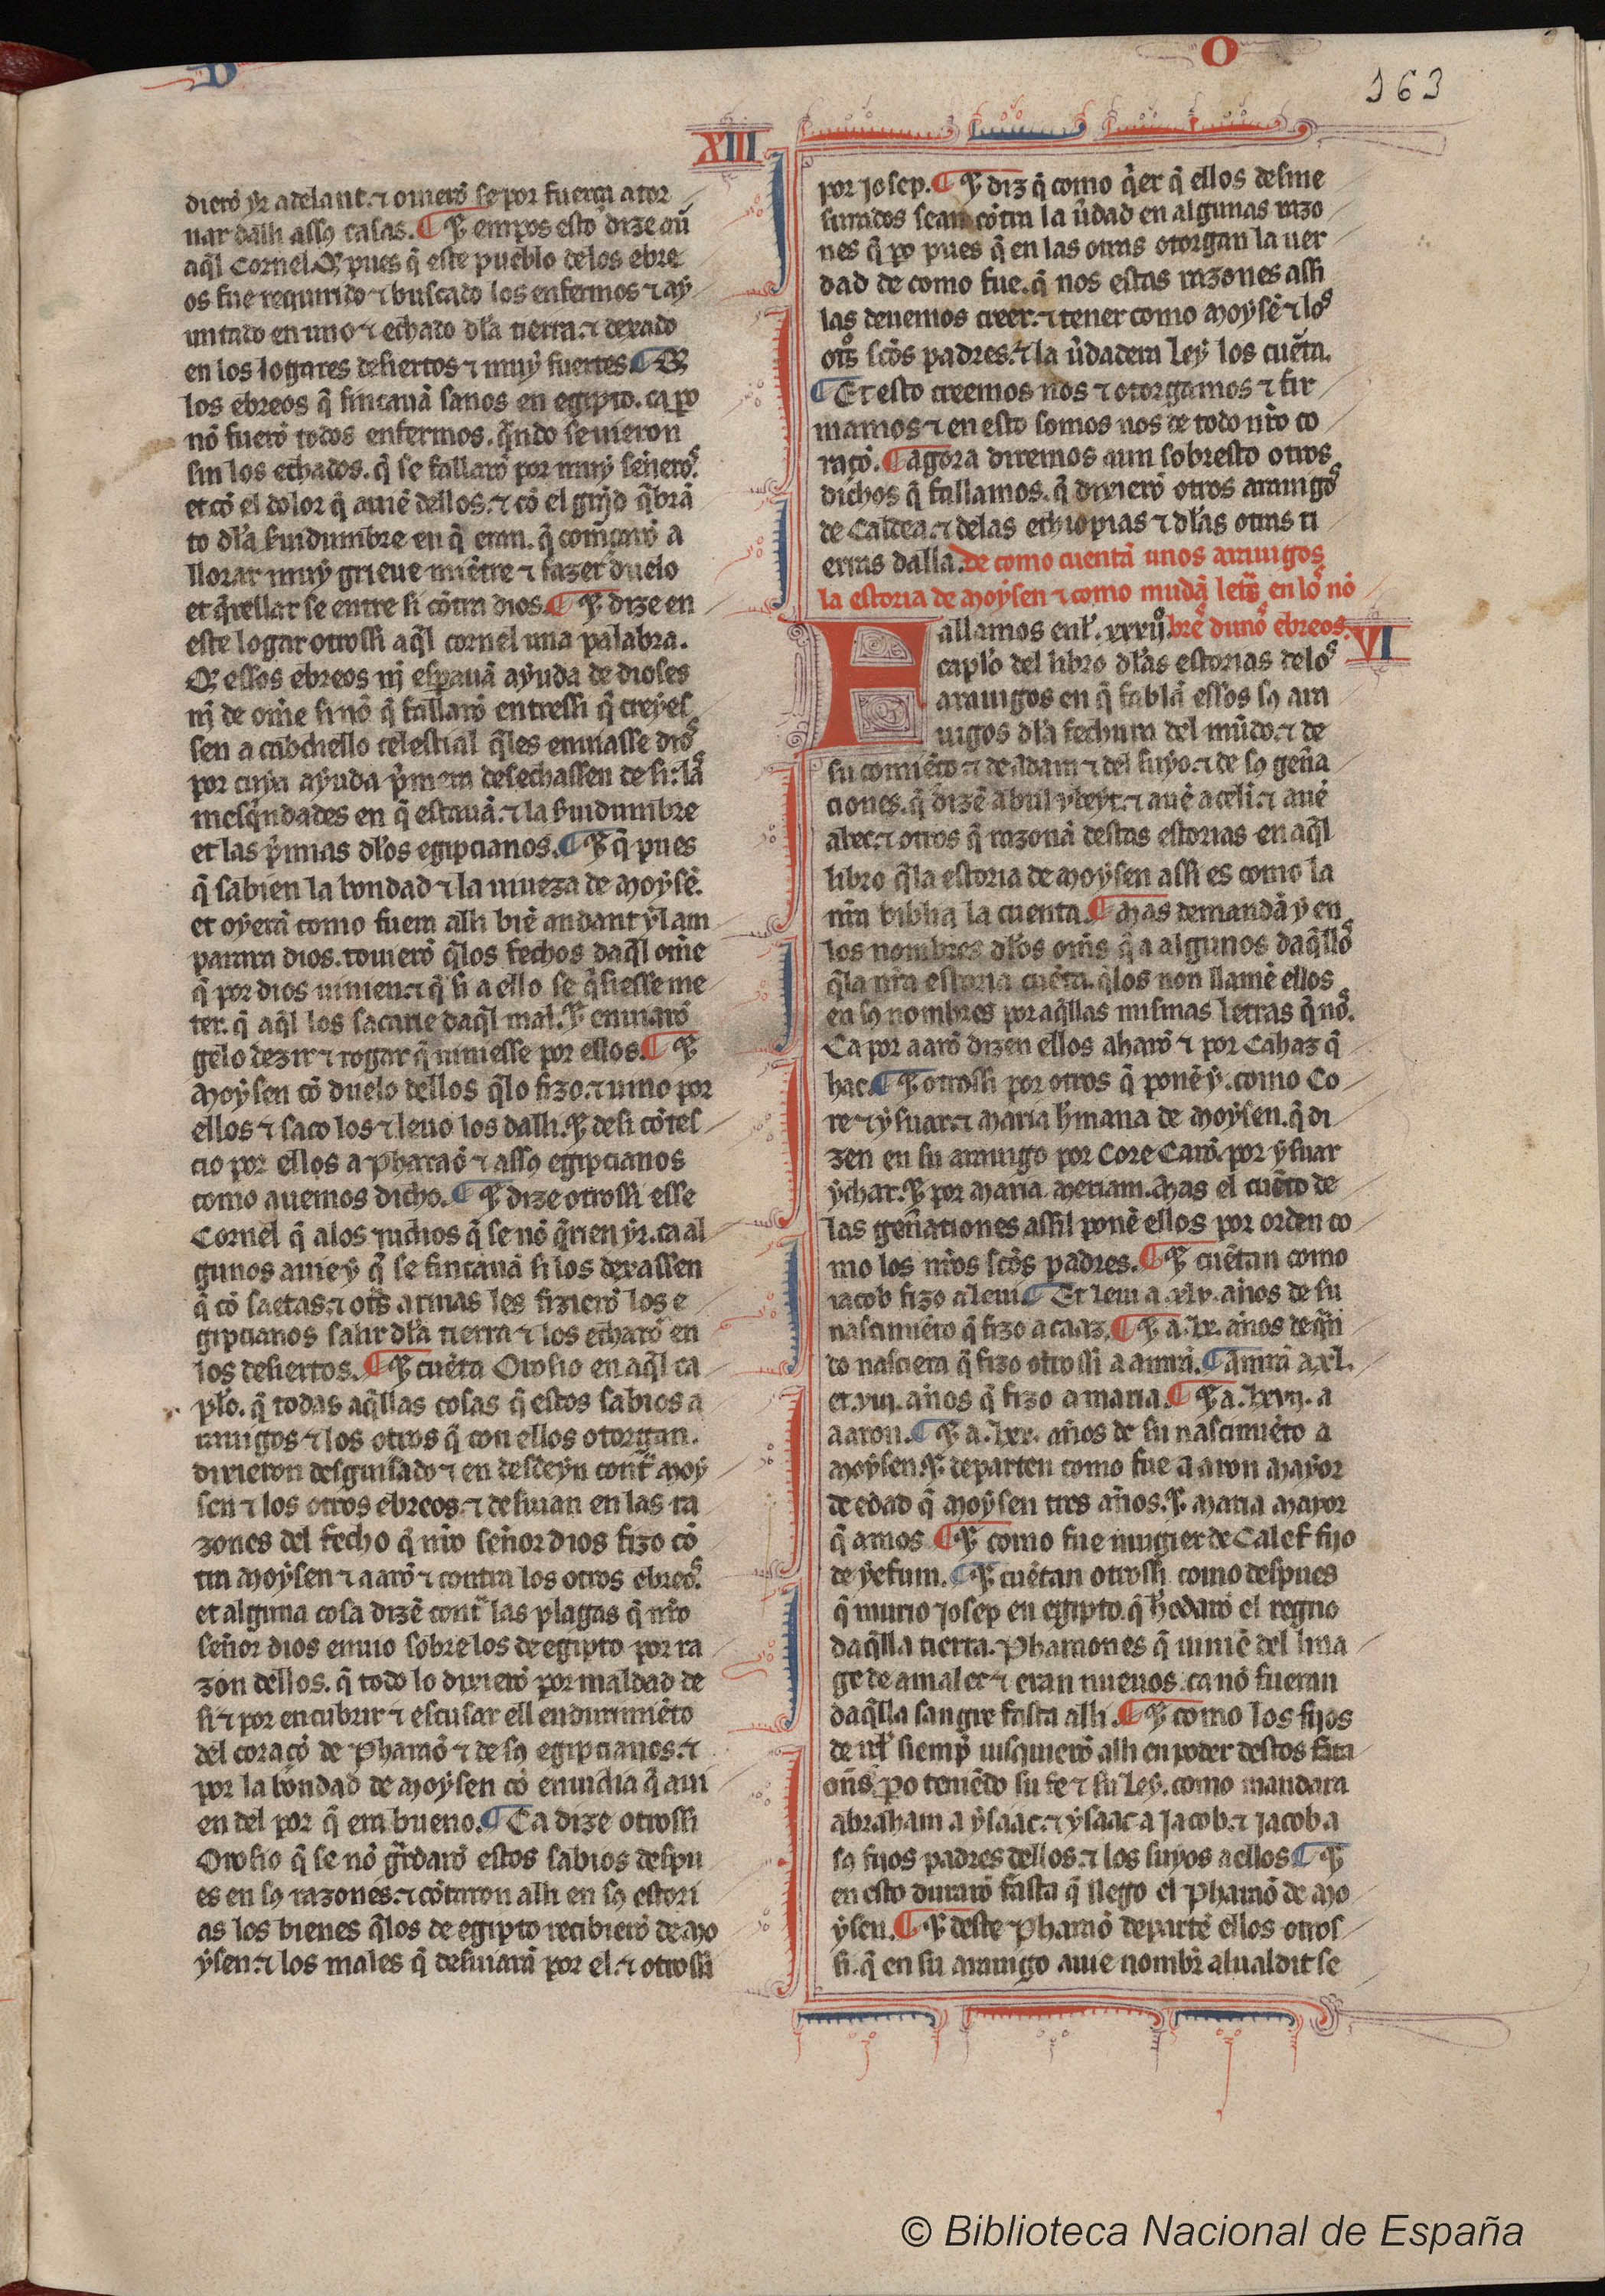 O
163
XIII
dierõ yr adelant. ⁊ ouierõ se por fuerça a tor
nar dalli assꝯ casas. ¶ ⁊ empos esto dize aũ
aq̃l Cornel. Q̃ pues q̃ este pueblo delos ebre
os fue requirido ⁊ buscado los enfermos ⁊ aÿ
untado en uno ⁊ echado dła tierra. ⁊ dexado
en los logares desiertos ⁊ muỹ fuertes ¶ Q̃
los ebreos q̃ fincauã sanos en egipto. ca ꝑo
nõ fuerõ todos enfermos. q̃ndo se uieron
sin los echados. q̃ se fallarõ por muy señeros.
et cõ el dolor q̃ auiẽ dellos. ⁊ cõ el grãd q̃brã
to dła s̃uidumbre en q̃ eran. q̃ comẽçarõ a
llorar muỹ grieue miẽtre ⁊ fazer duelo
et q̃rellar se entre si cõtra dios. ¶ ⁊ dize en
este logar otrossi aq̃l cornel una palabra.
Q̃ essos ebreos nĩ esꝑauã ayuda de dioses
nĩ de om̃e sinõ q̃ fallarõ entressi q̃ creyes
sen a cabdiello celestial q̃les enuiasse dios
por cuya ayuda p̃mera desechassen de si las
mesq̃ndades en q̃ estauã. ⁊ la s̃uidumbre
et las p̃mias dłos egipcianos. ¶ ⁊ q̃ pues
q̃ sabien la bondad ⁊ la uiueza de Moysẽ.
et oyerã como fuera alli biẽ andant ỹl am
parara dios. touierõ q̃los fechos daq̃l om̃e
q̃ por dios uinien. ⁊ q̃ si a ello se q̃siesse me
ter. q̃ aq̃l los sacarie daq̃l mal. ⁊ enuiarõ
gelo dezir ⁊ rogar q̃ uiniesse por ellos. ¶ ⁊
Moysen cõ duelo dellos q̃lo fizo. ⁊ uino por
ellos ⁊ saco los ⁊ leuo los dalli. ⁊ desi cõtes
cio por ellos a pharaõ ⁊ assꝯ egipcianos
como auemos dicho. ¶ ⁊ dize otrossi esse
Cornel q̃ alos judios q̃ se nõ q̃rien ỹr. ca al
gunos auie ỹ q̃ se fincauã si los dexassen
q̃ cõ saetas. ⁊ otãs armas les fizierõ los e
gipcianos salir dła tierra ⁊ los echarõ en
los desiertos. ¶ ⁊ cuẽta Orosio en aq̃l ca
pło. q̃ todas aq̃llas cosas q̃ estos sabios a
rauigos ⁊ los otros q̃ con ellos otorgan.
dixieron desguisado ⁊ en desdeyn cont̃ Moy
sen ⁊ los otros ebreos. ⁊ desuian en las ra
zones del fecho q̃ nr̃o señor dios fizo cõ
tra Moÿsen ⁊ aarõ ⁊ contra los otros ebreos.
et alguna cosa dizẽ cont̃ las plagas q̃ nr̃o
señor dios enuio sobre los de egipto por ra
zon dellos. q̃ todo lo dixierõ por maldad de
si ⁊ por encubrir ⁊ escusar ell enduramiẽto
del coraçõ de Pharaõ ⁊ de sꝯ egipcianos. ⁊
por la bondad de Moysen cõ enuidia q̃ aui
en del por q̃ era bueno. ¶ Ca dize otrossi
Orosio q̃ se nõ g̃rdarõ estos sabios despu
es en sꝯ razones. ⁊ cõtaron alli en sꝯ estori
as los bienes q̃los de egipto recibierõ de Mo
ÿsen. ⁊ los males q̃ desuiara por el. ⁊ otrossi
por Josep. ¶ ⁊ diz q̃ como q̃er q̃ ellos desme
surados sean cõtra la ũdad en algunas razo
nes q̃ ꝑo pues q̃ en las otras otorgan la uer
dad de como fue. q̃ nos estas razones assi
las deuemos creer. ⁊ tener como Moysẽ ⁊ los
otõs scõs padres. ⁊ la ũdadera Leỹ los cuẽta.
¶ Et esto creemos nos ⁊ otorgamos ⁊ fir
mamos ⁊ en esto somos nos de todo nr̃o co
raçõ. ¶ agora diremos aun sobresto otros
dichos q̃ fallamos. q̃ dixierõ otros arauigos
de Caldea. ⁊ delas ethiopias ⁊ dłas otras ti
erras dalla. De como cuentã unos arauigos
la estoria de Moysen ⁊ como mudã letãs en los nõ
bres dunos ebreos. VI
Fallamos enł. xxxijº.
capło del libro dłas estorias delos
arauigos en q̃ fablã essos sꝯ ara
uigos dła fechura del mũdo. ⁊ de
su comiẽço ⁊ de Adam ⁊ del suyo. ⁊ de sꝯ gen̄a
ciones. q̃ dizẽ abul ybeyt. ⁊ auẽ aceli. ⁊ auẽ
abec. ⁊ otros q̃ razonã destas estorias en aq̃l
libro q̃la estoria de Moysen assi es como la
nr̃a biblia la cuenta. ¶ Mas demandã ỹ en
los nombres dłos om̃s q̃ a algunos daq̃llos
q̃la nr̃a estoria cuẽta. q̃los non llamẽ ellos
en sꝯ nombres por aq̃llas mismas letras q̃ nos.
Ca por aarõ dizen ellos aharõ ⁊ por Cahaz q̃
hac. ¶ ⁊ otrossi por otros q̃ ponẽ ỹ. como Co
re ⁊ ysuar. ⁊ Maria h̃mana de Moysen. q̃ di
zen en su arauigo por Core Carõ. por ysuar
ychar. ⁊ por Maria Meriam. Mas el cuẽto de
las gen̄ationes assil ponẽ ellos por orden co
mo los nr̃os scõs padres. ¶ ⁊ cuẽtan como
iacob fizo a leui ¶ Et leui a .xlv. años de su
nascimiẽto q̃ fizo a caaz. ¶ ⁊ a .lx. años de q̃n
do nasciera q̃ fizo otrossi a amrã. ¶ amrã a .xl.
et .viij. años q̃ fizo a maria. ¶ ⁊ a .lxvij. a
aaron. ¶ ⁊ a .lxx. años de su nascimiẽto a
Moysen. ⁊ departen como fue aaron mayor
de edad q̃ Moysen tres años. ⁊ Maria mayor
q̃ amos ¶ ⁊ como fue mugier de Calef fijo
de yefun. ¶ ⁊ cuẽtan otrossi como despues
q̃ murio Josep en egipto. q̃ h̃edarõ el regno
daq̃lla tierra. Pharaones q̃ uiniẽ del lina
ge de amalec ⁊ eran nueuos. ca nõ fueran
daq̃lla sangre fasta alli. ¶ ⁊ como los fijos
de isrł siemp̃ uisquierõ alli en poder destos fara
ons̃. ꝑo teniẽdo su fe ⁊ su Ley. como mandara
abraham a ysaac. ⁊ ysaac a Jacob. ⁊ Jacob a
sꝯ fijos padres dellos. ⁊ los suyos a ellos ¶ ⁊
en esto durarõ fasta q̃ llego el Pharaõ de Mo
ÿsen. ¶ ⁊ deste Pharaõ departẽ ellos otros
si. q̃ en su arauigo auie nombr̃ alualdit se
© Biblioteca Nacional de España